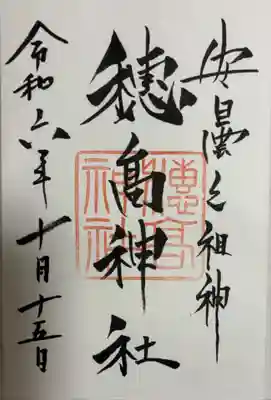 安曇之祖神
穂高神社
令和六年十月十五日
穂高神社